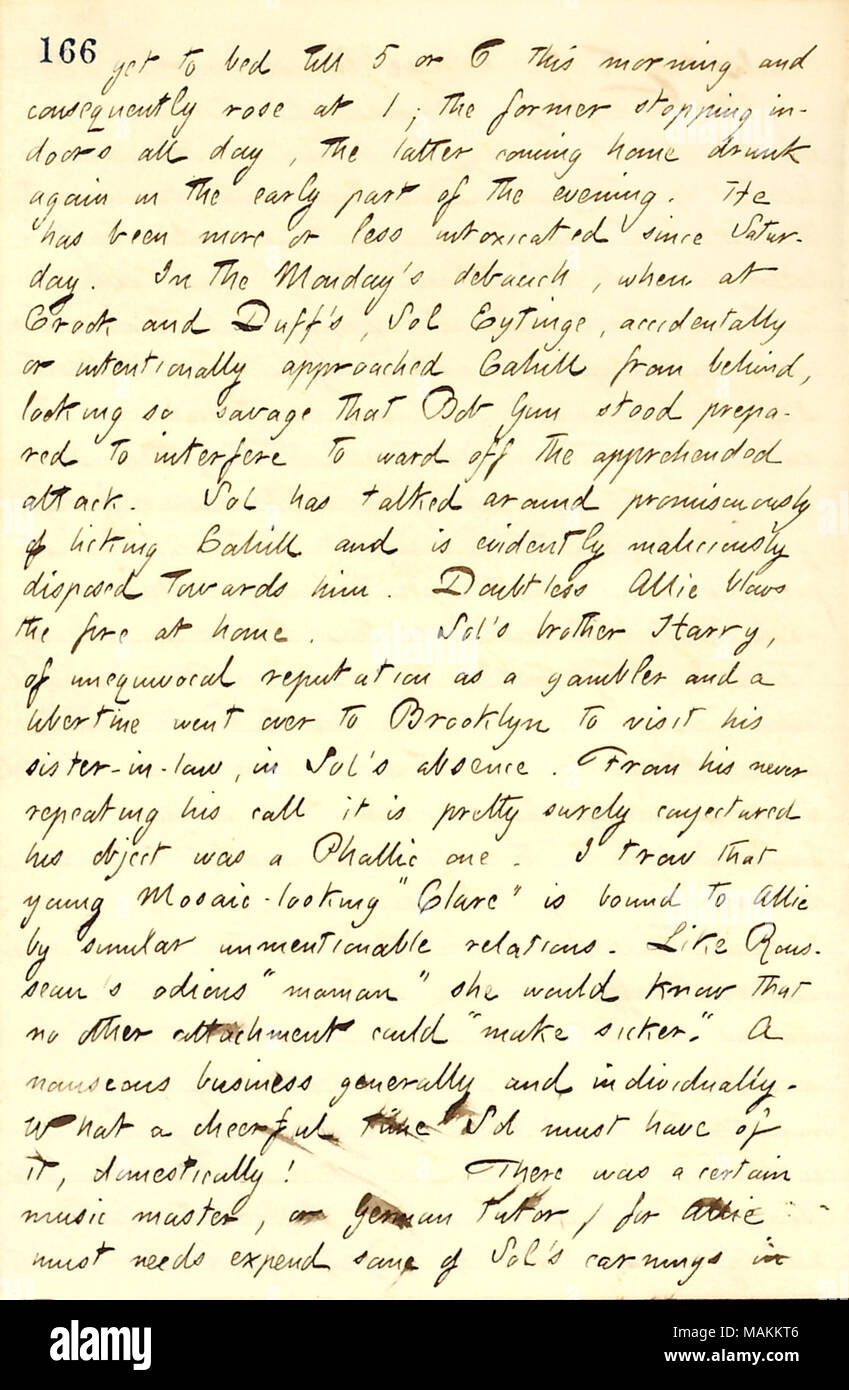 166
get to bed till 5 or 6 this morning and
consequently rose at 1; the former stopping in-
doors all day, the latter coming home drunk
again in the early part of the evening. He
has been more or less intoxicated since Satur-
day. In the Monday's debauch, when at
Crook and Duff's, Sol Eytinge, accidentally
or intentionally approached Cahill from behind,
looking so savage that Bob Gun stood prepa-
red to interfere to ward off the apprehended
attack. Sol has talked around promiscuously
of licking Cahill and is evidently maliciously
disposed towards him. Doubtless Allie blows
the fire at home. Sol's brother Harry,
of unequivocal reputation as a gambler and a
libertine went over to Brooklyn to visit his
sister-in-law, in Sol's absence. From his never
repeating his call it is pretty surely conjectured
his object was a Phallic one. I trow that
young Mosaic-looking "Clare" is bound to Allie
by similar unmentionable relations. Like Rous-
seau's odious "maman" she would know that
no other attachment could "make sicker." A
nauseous business generally and individually.
What a cheerful time Sol must have of
it, domestically! There was a certain
music master, or German tutor, for Allie
must needs expend some of Sol's earnings in
alamy
Image ID: MAKKT6
www.alamy.com